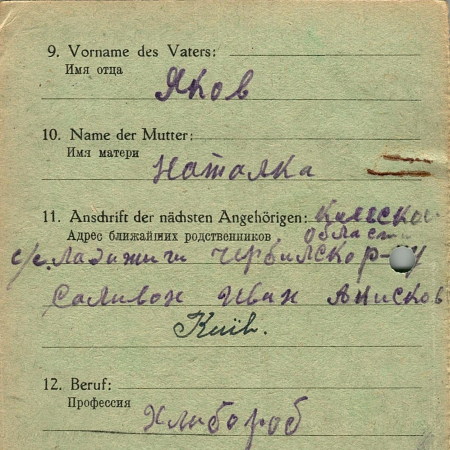 9. Vorname des Vaters:
Имя отца
Яков
10. Name der Mutter:
Имя матери
Наталка
11. Anschrift der nächsten Angehörigen:
Адрес ближайших родственников области
с/с.
Саливон Иван
Київ.
12. Beruf:
Профессия
Хлибороб